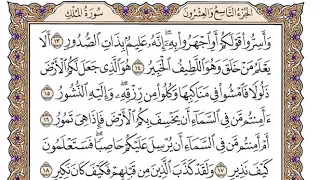 الجزء التاسع والعشرون
سورة الملك
وَأَسِرُّوا۟ قَوْلَكُمْ أَوِ ٱجْهَرُوا۟ بِهِۦٓ إِنَّهُۥ عَلِيمٌۢ بِذَاتِ ٱلصُّدُورِ ١٣ أَلَا
يَعْلَمُ مَنْ خَلَقَ وَهُوَ ٱللَّطِيفُ ٱلْخَبِيرُ ١٤ هُوَ ٱلَّذِى جَعَلَ لَكُمُ ٱلْأَرْضَ
ذَلُولًا فَٱمْشُوا۟ فِى مَنَاكِبِهَا وَكُلُوا۟ مِن رِّزْقِهِۦ وَإِلَيْهِ ٱلنُّشُورُ ١٥
ءَأَمِنتُم مَّن فِى ٱلسَّمَآءِ أَن يَخْسِفَ بِكُمُ ٱلْأَرْضَ فَإِذَا هِىَ تَمُورُ
١٦ أَمْ أَمِنتُم مَّن فِى ٱلسَّمَآءِ أَن يُرْسِلَ عَلَيْكُمْ حَاصِبًا فَسَتَعْلَمُونَ
كَيْفَ نَذِيرِ ١٧ وَلَقَدْ كَذَّبَ ٱلَّذِينَ مِن قَبْلِهِمْ فَكَيْفَ كَانَ نَكِيرِ ١٨